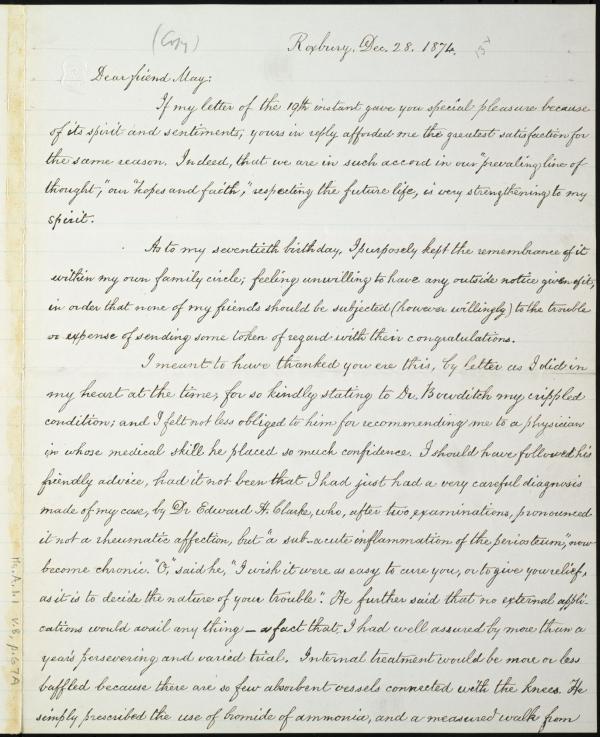 (Copy)
Roxbury, Dec. 28. 1874.
Dear friend May:
If my letter of the 19th instant gave you special pleasure because
of its spirit and sentiments, yours in reply afforded me the greatest satisfaction for
the same reason. Indeed, that we are in such accord in our "prevailing line of
thought," our "hopes and faith," respecting the future life, is very strengthening to my
spirit.
As to my seventieth birthday, I purposely kept the remembrance of it
within my own family circle; feeling unwilling to have any outside notice given of it,
in order that none of my friends should be subjected (however willingly) to the trouble
or expense of sending some token of regard with their congratulations.
I meant to have thanked you ere this, by letter as I did in
my heart at the time, for so kindly stating to Dr. Bowditch my crippled
condition; and I felt not less obliged to him for recommending me to a physician
in whose medical skill he placed so much confidence. I should have followed his
friendly advice, had it not been that I had just had a very careful diagnosis
made of my case, by Dr Edward H. Clarke, who, after two examinations, pronounced
it not a rheumatic affection, but "a sub-acute inflammation of the periosteum," now
become chronic. "O," said he, "I wish it were as easy to cure you, or to give you relief,
as it is to decide the nature of your trouble". He further said that no external appli-
cations would avail any thing — a fact that I had well assured by more than a
year's persevering and varied trial. Internal treatment would be more or less
baffled because there are so few absorbent vessels connected with the knees. He
simply prescribed the use of bromide of ammonia, and a measured walk from
Ms.A.1.1 v.8, p.67A